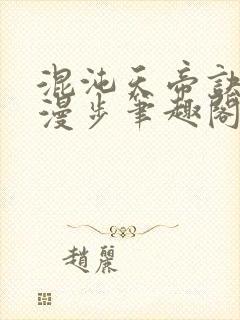 混沌天帝訣
漫步筆趣閣
趙麗